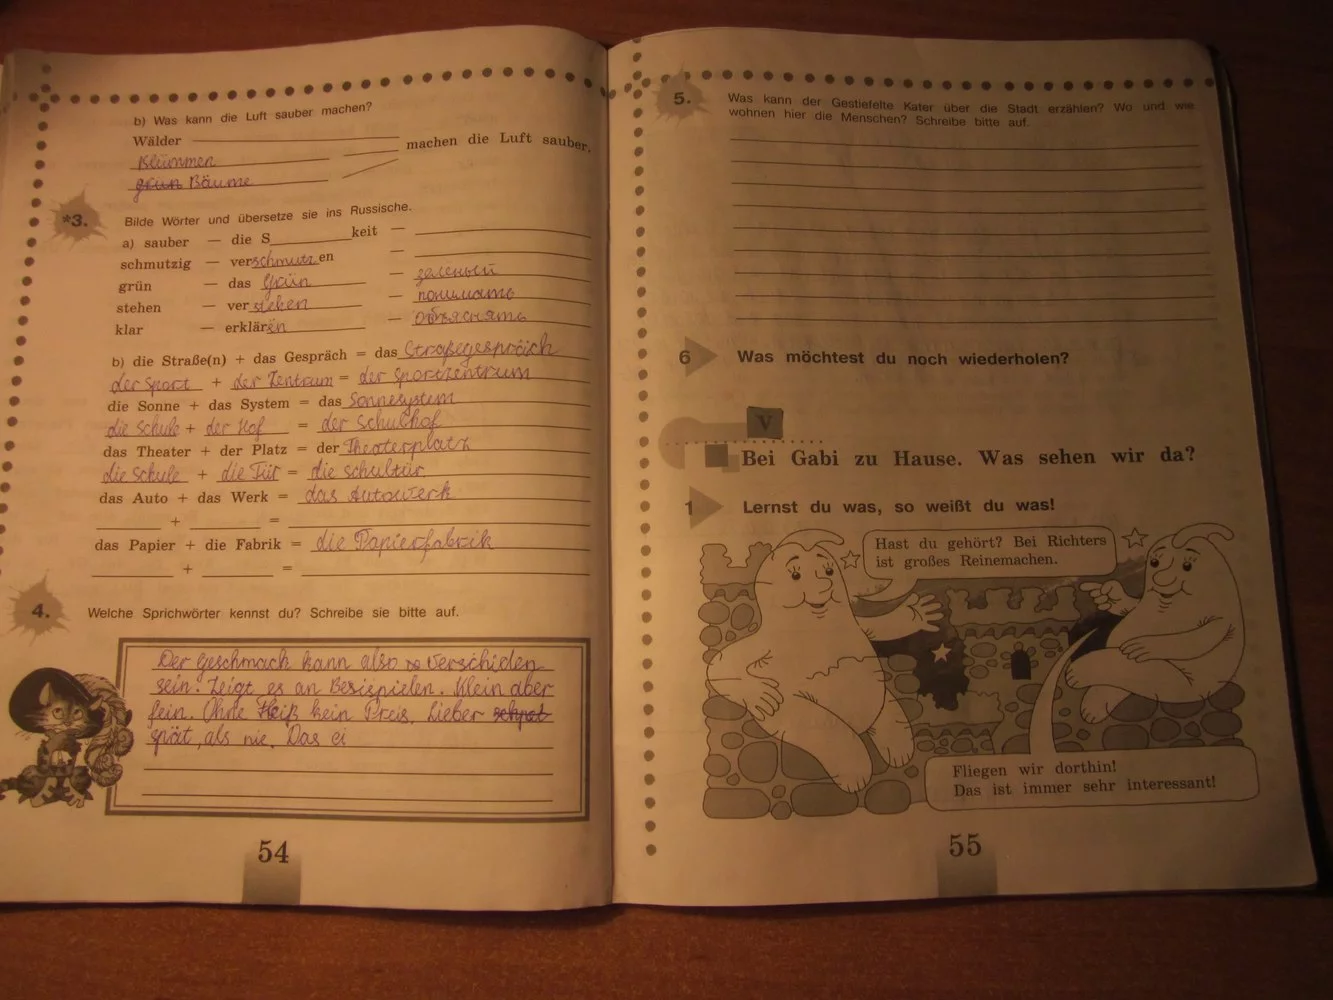 b) Was kann die Luft sauber machen?
Wälder machen die Luft sauber.
Blümmen
grün Bäume
*3. Bilde Wörter und übersetze sie ins Russische.
a) sauber — die S keit —
schmutzig — verschmutzen
grün — das Grün — зеленый
stehen — verstehen — понимать
klar — erklären — объяснять
b) die Straße(n) + das Gespräch = das Straßegespräch
der Sport + der Zentrum = der Sportzentrum
die Sonne + das System = das Sonnesystem
die Schule + der Hof = der Schulhof
das Theater + der Platz = der Theaterplatz
die Schule + die Tür = die Schultür
das Auto + das Werk = das Autowerk
+ =
das Papier + die Fabrik = die Papierfabrik
+ =
4. Welche Sprichwörter kennst du? Schreibe sie bitte auf.
Der Geschmack kann also verschiden
sein. Zeigt es an Beispielen. Klein aber
fein. Ohne Fleiß kein Preis. Lieber
spät, als nie. Das ei
54
5. Was kann der Gestiefelte Kater über die Stadt erzählen? Wo und wie
wohnen hier die Menschen? Schreibe bitte auf.
6 Was möchtest du noch wiederholen?
V
Bei Gabi zu Hause. Was sehen wir da?
1 Lernst du was, so weißt du was!
Hast du gehört? Bei Richters
ist großes Reinemachen.
Fliegen wir dorthin!
Das ist immer sehr interessant!
55